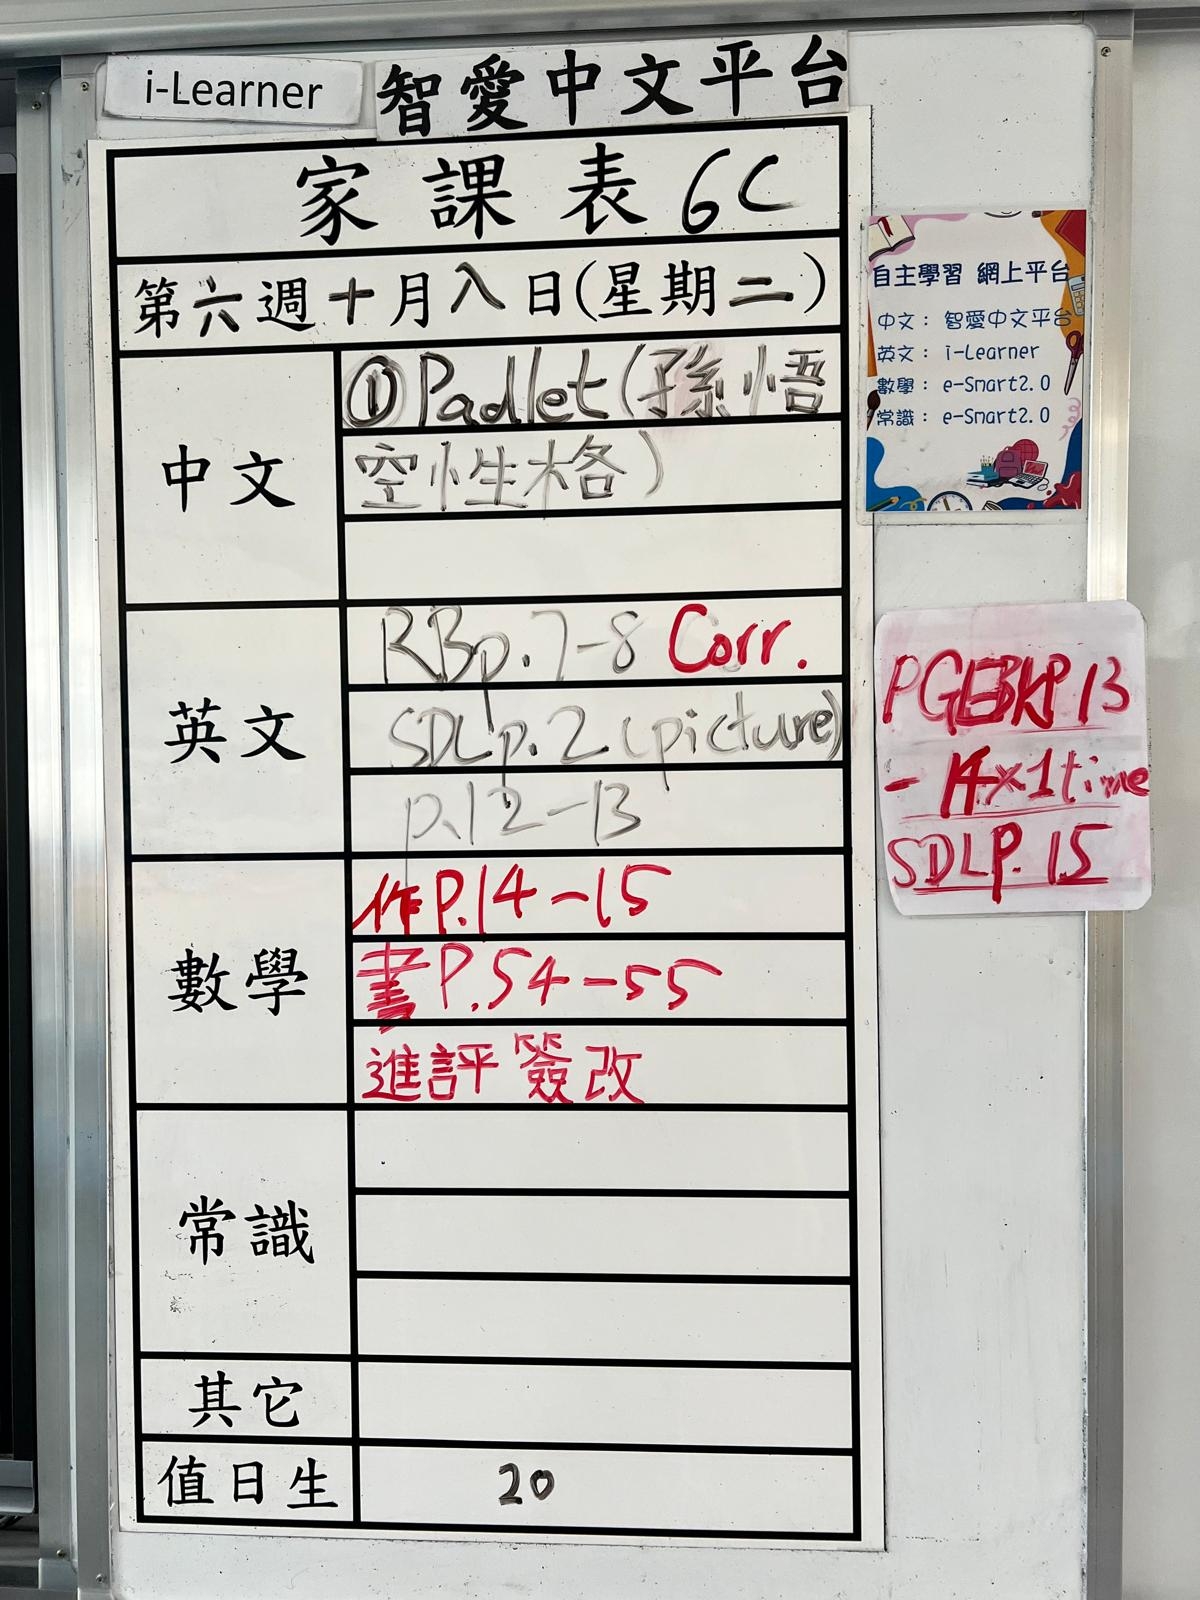 i-Learner
智愛中文平台
家課表 6C
第六週十月八日(星期二)
中文
①Padlet(孫悟
空性格)
英文
RBp.7-8 Corr.
SDLp.2(picture)
p.12-13
數學
作P.14-15
書P.54-55
進評簽改
常識
其它
值日生
20
自主學習 網上平台
中文：智愛中文平台
英文：i-Learner
數學：e-Smart2.0
常識：e-Smart2.0
P.13
-14×1time
SDLP.15